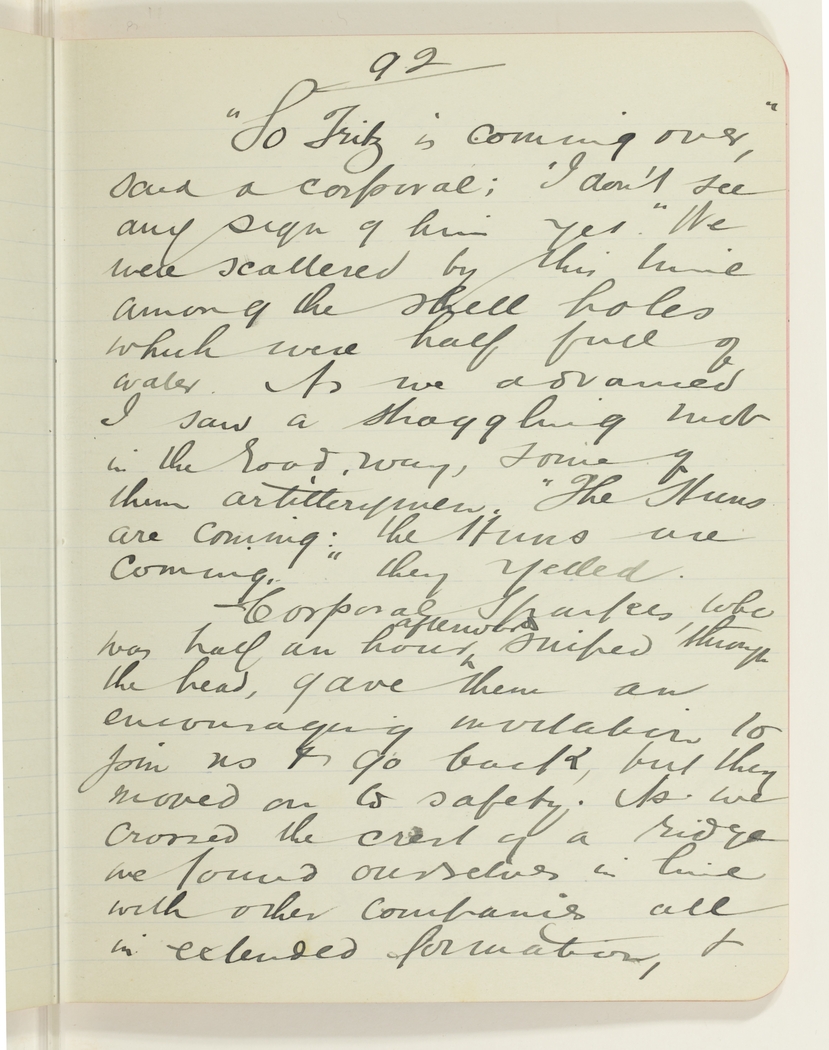 92
"So Fritz is coming over,"
said a corporal; "I don't see
any sign of him yet." We
were scattered by this time
among the shell holes
which were half full of
water. As we advanced
I saw a straggling mob
in the road, way, some of
them artillerymen. "The Huns
are coming: the Huns are
coming," they yelled.
Corporal Sparkes, who
afterwards
was half an hour sniped through
the head, gave them an
encouraging invitation to
join us & go back, but they
moved on to safety. As we
crossed the crest of a ridge
we found ourselves in line
with other companies all
in extended formation, &